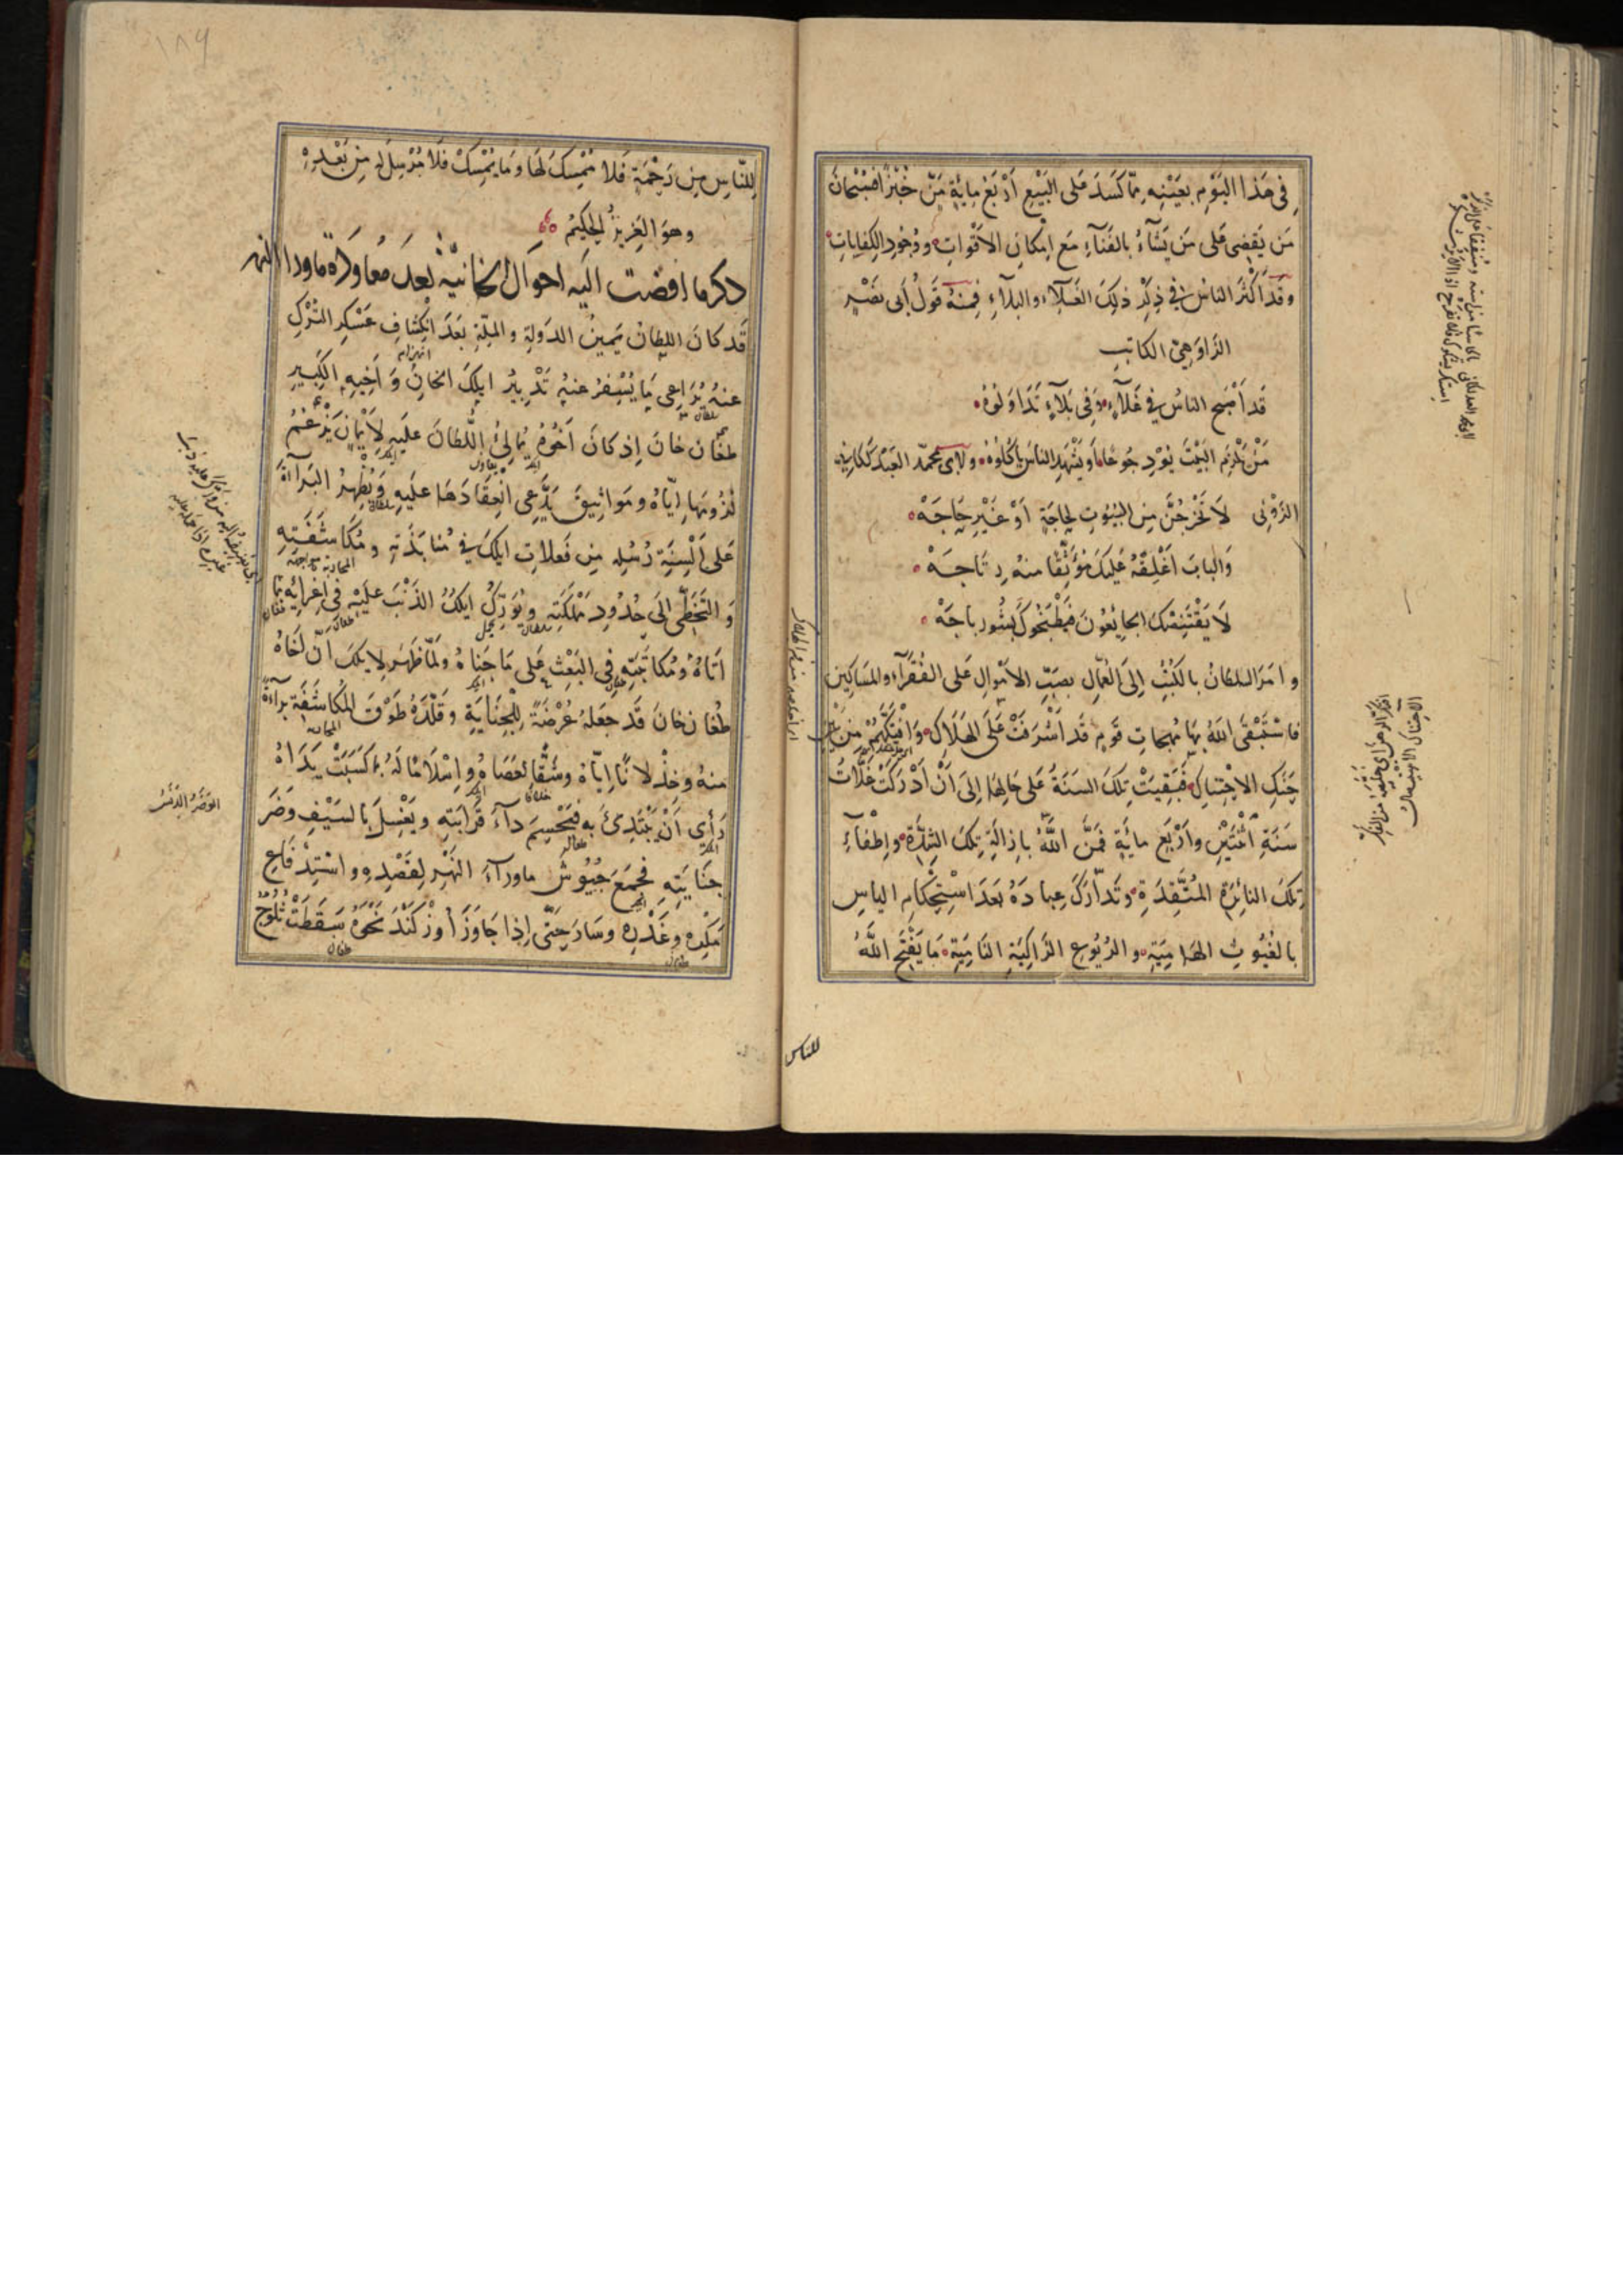 في هذا اليوم بعينه مما كسد على البيع اربع مائة من خبز افسبحان
من يقضى على من يشاء بالفناء مع امكان الاقوات ووجود الكفايات
وقد اكثر الناس في ذكر ذلك الغلاء والبلاء فمنه قول ابى نصر
الراوهى الكاتب
قد اصبح الناس في غلاء وفى بلاء تداولوه
من يلزم البيت يود جوعا او يشهد الناس ياكلوه ولابى محمد العبد لكانى
الزوزنى لا تخرجن من البيوت لحاجة او غير حاجه
والباب اغلقه عليك موثقا منه رتاجه
لا يقتنصك الجايعون فيطبخوك بشورباجه
وامر السلطان بالكتب الى العمال بصب الاموال على الفقراء والمساكين
فاستبقى الله بها مهجات قوم قد اشرفت على الهلاك وافتكهم من
حنك الاحتناك فبقيت تلك السنة على حالها الى ان ادركت غلات
سنة اثنتين واربع مائة فمن الله باذالة تلك الشدة واطفاء
تلك النائرة المتقدة وتدارك عباده بعد استحكام الياس
بالغيوث الهامية والريوع الزاكية النامية ما يفتح الله
للناس
للناس من رحمة فلا ممسك لها وما يمسك فلا مرسل له من بعده
وهو العزيز الحكيم
ذكر ما افضت اليه احوال الخانية بعد معاودة ماوراالنهر
قد كان السلطان يمين الدولة والملة بعد انكشاف عسكر الترك
عنه يراعى ما يسفر عنه تدبير ايلك الخان واخيه الكبير
طغان خان اذ كان اخوه يمالئ السلطان عليه لايمان يزعم
لزومها اياه ومواثيق يدعى انعقادها عليه ويظهر البراءة
على السنة رسله من فعلات ايلك في منابذته ومكاشفته
والتخطى الى حدود مملكته ويورك ايلك الذنب عليه في اغرائه بما
اتاه ومكاتبته في البعث على ما جناه ولما ظهر لايلك ان اخاه
طغان خان قد جعله عرضة للجناية وقلده طوق المكاشفة براءة
منه وخذلانا اياه وشقا لعصاه واسلاما له بما كسبت يداه
رأى ان يبتدئ به فيحسم داء قرابته ويغسل بالسيف وضر
جنايته فجمع جيوش ماوراء النهر لقصده واستدفاع
مكره وغدره وسار حتى اذا جاوز اوزكند نحوه سقطت ثلوج
الوضر الدنس